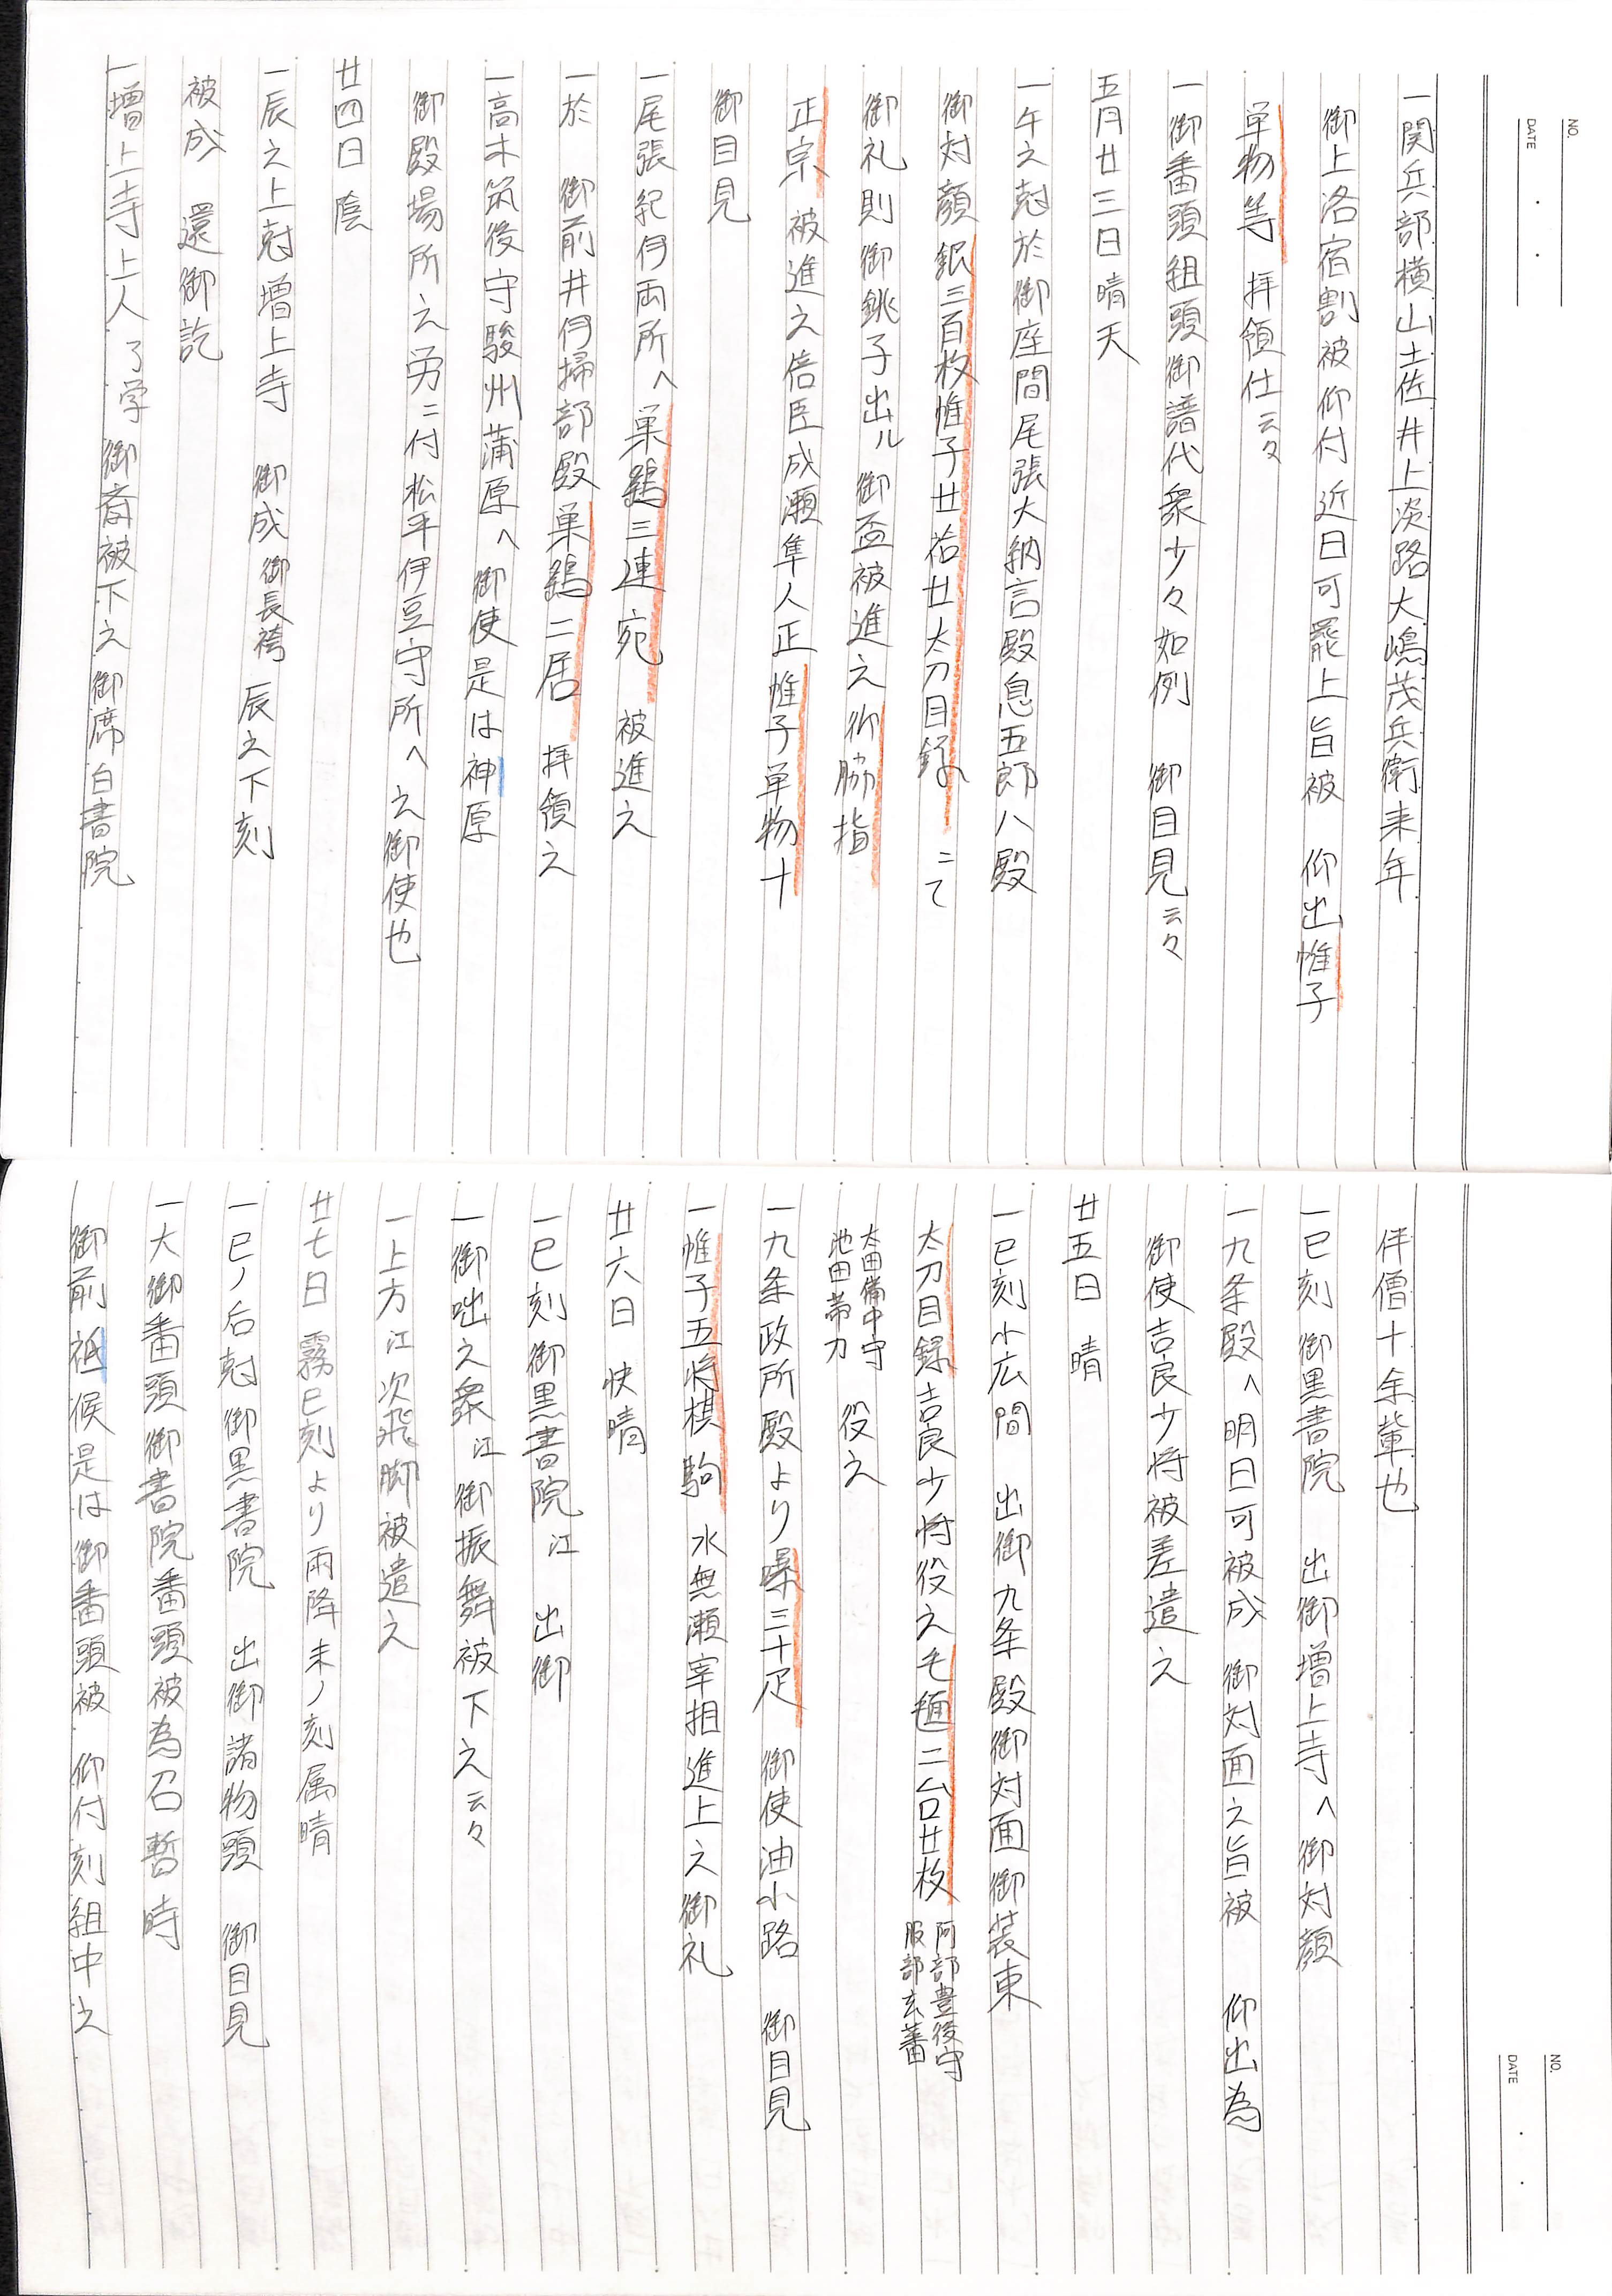 NO.
DATE
一関兵部横山土佐井上淡路大嶋茂兵衛来年
御上洛宿割被仰付近日可罷上旨被 仰出帷子
単物等 拝領仕云々
一御番頭組頭御譜代衆少々如例 御目見云々
五月廿三日晴天
一午之尅於御座間尾張大納言殿息五郎八殿
御対顔銀三百枚帷子廿袷廿太刀目録 ニて
御礼則御銚子出ル 御盃被進之御脇指
正宗 被進之倍臣成瀬隼人正帷子単物十
御目見
一尾張紀伊両所へ巣鷂三連宛 被進之
一於 御前井伊掃部殿巣鷂二居 拝領之
一高木筑後守駿州蒲原へ御使是は神原
御殿場所之労ニ付松平伊豆守所へ之御使也
廿四日 陰
一辰之上尅増上寺 御成御長袴 辰之下刻
被成 還御訖
一増上寺上人了学 御斎被下之御席白書院
伴僧十余輩也
一巳刻 御黒書院 出御増上寺へ御対顔
一九条殿へ明日可被成 御対面之旨被 仰出為
御使吉良少将被差遣之
廿五日 晴
一巳刻小広間 出御九条殿御対面御装束
太刀目録吉良少将役之毛氈二台廿枚 阿部豊後守
服部玄蕃
太田備中守
池田帯刀 役之
一九条政所殿より縹三十疋 御使油小路 御目見
一帷子五将棋駒 水無瀬宰相進上之御礼
廿六日 快晴
一巳刻御黒書院江 出御
一御咄之衆江御振舞被下之云々
一上方江次飛脚被遣之
廿七日 霧巳刻より雨降未ノ刻属晴
一巳ノ后尅御黒書院 出御諸物頭 御目見
一大御番頭御書院番頭被為召暫時
御前祗候是は御番頭被 仰付刻組中之
NO.
DATE